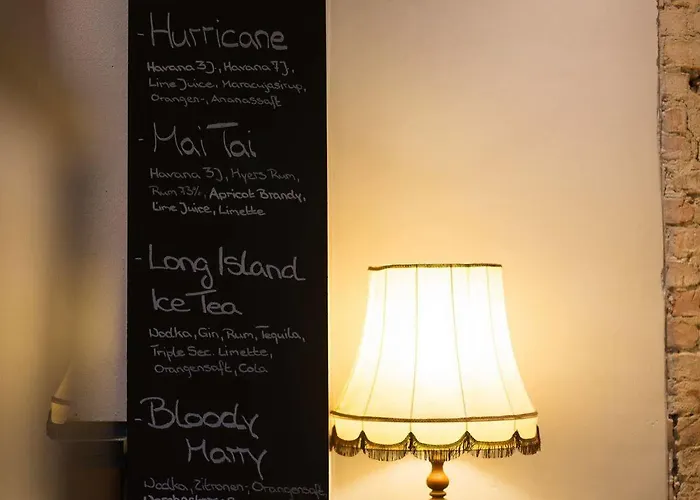 - Hurricane
Havana 3J, Havana 7J,
Lime Juice, Maracujasirup,
Orangen-, Ananassaft
- Mai Tai
Havana 3J, Myers Rum,
Rum 73%, Apricot Brandy,
Lime Juice, Limette
- Long Island
Ice Tea
Wodka, Gin, Rum, Tequila,
Triple Sec. Limette,
Orangensaft, Cola
- Bloody
Marry
Wodka, Zitronen-, Orangensaft